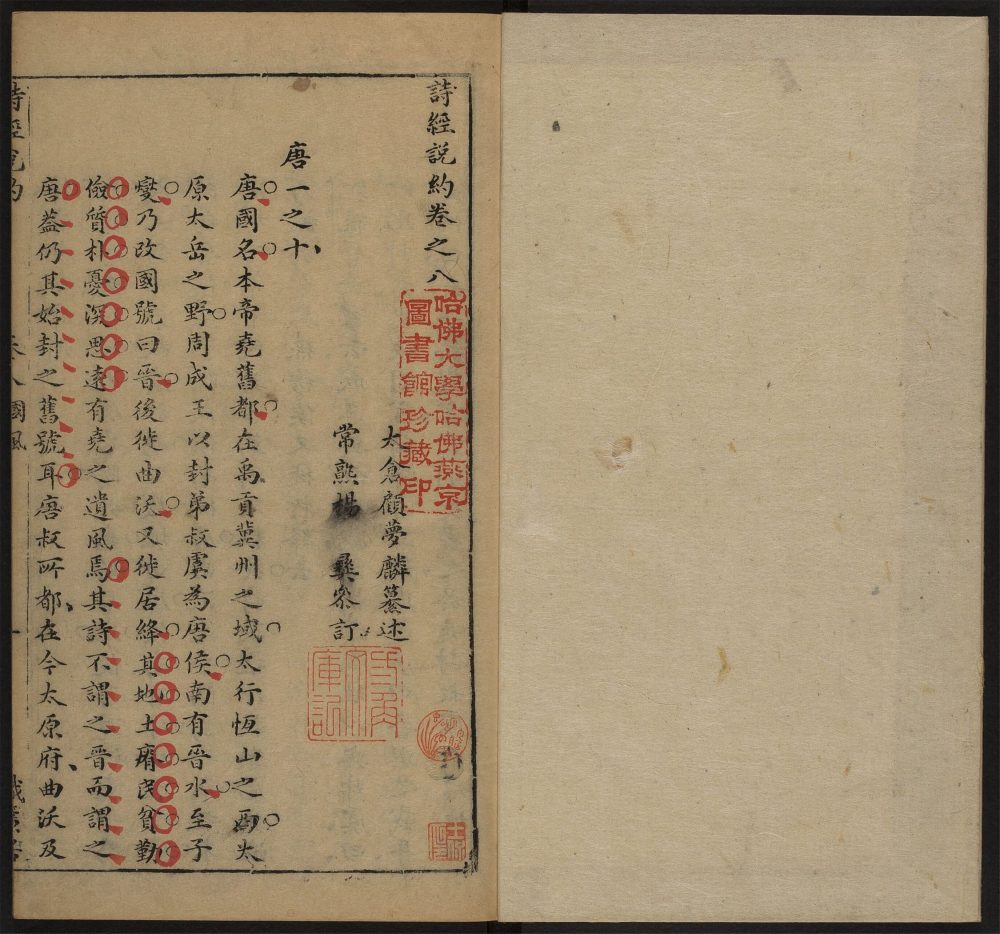 詩經說約卷之八
太倉顧夢麟纂述
常熟楊 彝叅訂
唐一之十
唐國名本帝堯舊都在禹貢冀州之域太行恆山之西太
原太岳之野周成王以封弟叔虞為唐侯南有晉水至子
燮乃改國號曰晉後徙曲沃又徙居絳其地土瘠民貧勤
儉質朴憂深思遠有堯之遺風焉其詩不謂之晉而謂之
唐葢仍其始封之舊號耳唐叔所都在今太原府曲沃及
詩經說約 卷八國風 一
哈佛大學哈佛燕京
圖書館珍藏印